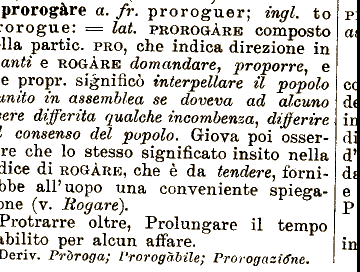 prorogàre a. fr. proroguer; ingl. to
rorogue: = lat. PROROGÀRE composto
lla partic. PRO, che indica direzione in
anti e ROGÀRE domandare, proporre, e
e propr. significò interpellare il popolo
unito in assemblea se doveva ad alcuno
ere differita qualche incombenza, differire
l consenso del popolo. Giova poi osser-
re che lo stesso significato insito nella
dice di ROGÀRE, che è da tendere, forni-
bbe all'uopo una conveniente spiega-
one (v. Rogare).
Protrarre oltre, Prolungare il tempo
abilito per alcun affare.
Deriv. Pròroga; Prorogàbile; Prorogazióne.